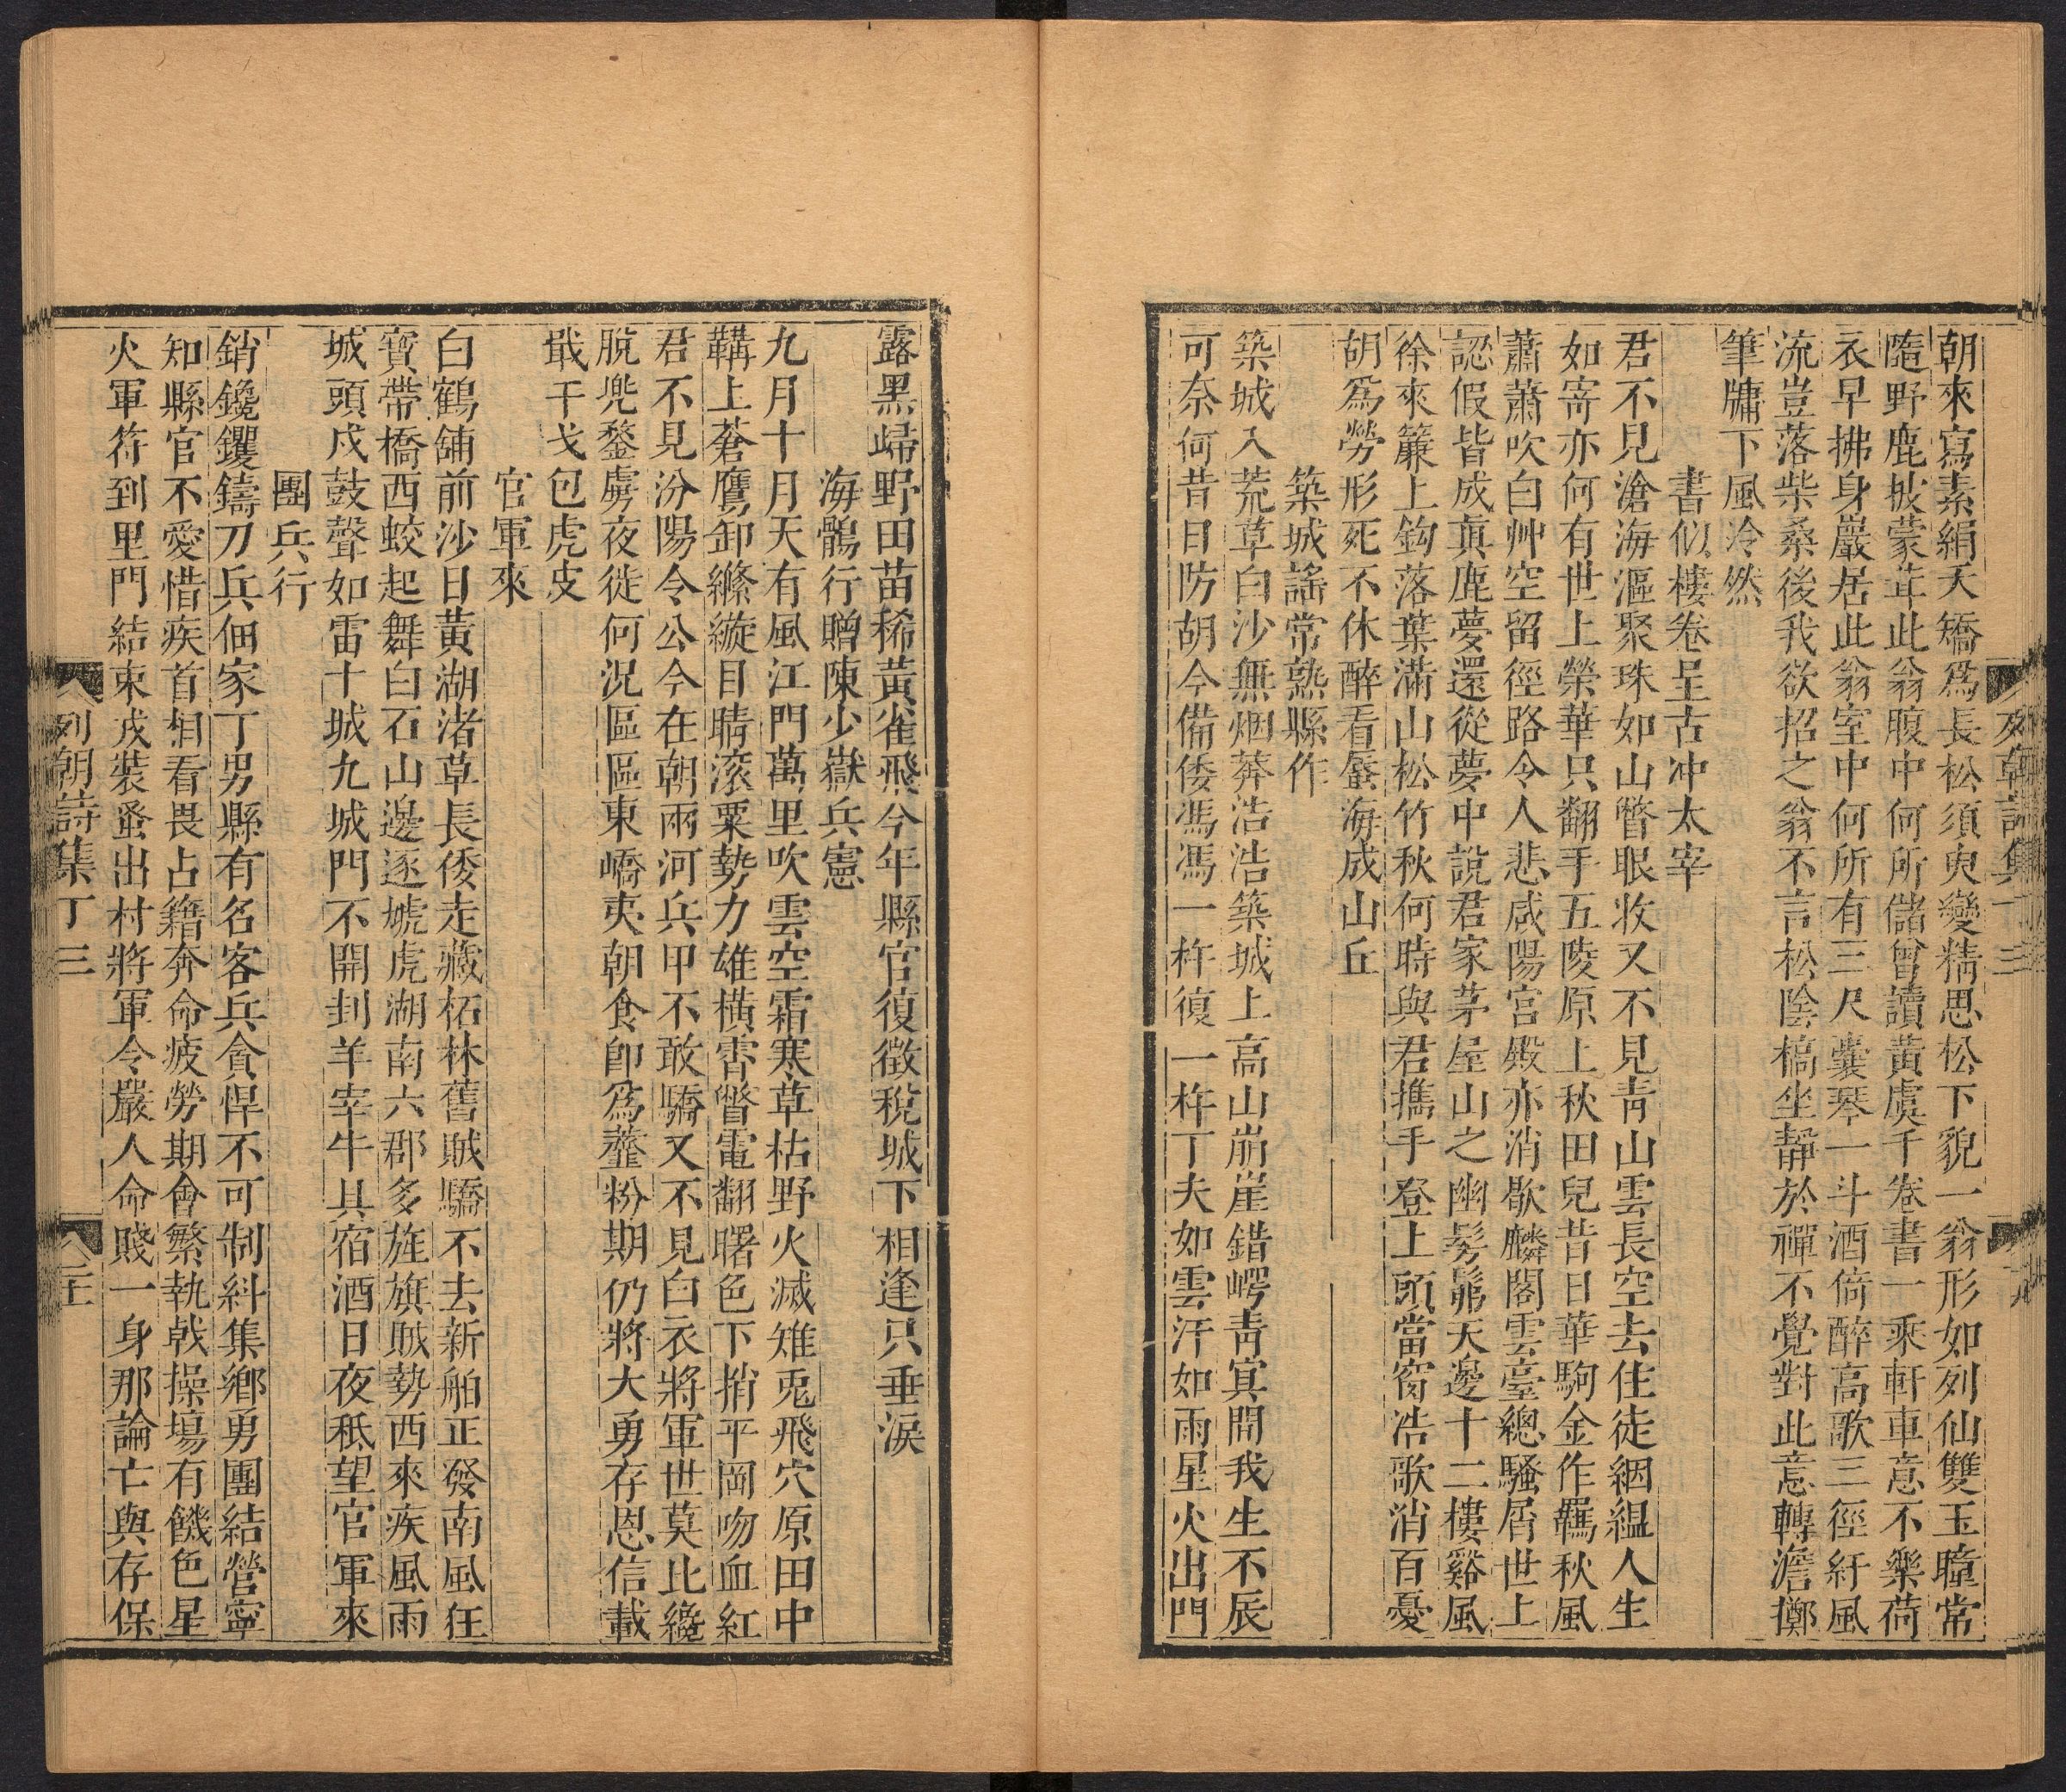 列朝詩集丁三
十九
朝來寫素絹夭矯爲長松須臾變精思松下貌一翁形如列仙雙玉瞳常
隨野鹿披蒙茸此翁腹中何所儲曾讀黃虞千卷書一乘軒車意不樂荷
衣早拂身巖居此翁室中何所有三尺囊琴一斗酒倚醉高歌三徑紆風
流豈落柴桑後我欲招之翁不言松陰槁坐靜於禪不覺對此意轉澹擲
筆牗下風泠然
書似樓卷呈古冲太宰
君不見滄海漚聚珠如山瞥眼收又不見靑山雲長空去住徒絪縕人生
如寄亦何有世上榮華只翻手五陵原上秋田兒昔日華駒金作羈秋風
蕭蕭吹白艸空留徑路令人悲咸陽宮殿亦消歇麟閣雲臺總騷屑世上
認假皆成眞鹿夢還從夢中說君家茅屋山之幽髣髴天邊十二樓谿風
徐來簾上鈎落葉滿山松竹秋何時與君攜手登上頭當窗浩歌消百憂
胡爲勞形死不休醉看蜃海成山丘
築城謠常熟縣作
築城入荒草白沙無烟莽浩浩築城上高山崩崖錯崿靑冥間我生不辰
可奈何昔日防胡今備倭馮馮一杵復一杵丁夫如雲汗如雨星火出門
露黑歸野田苗稀黃雀飛今年縣官復徵稅城下相逢只垂淚
海鶻行贈陳少嶽兵憲
九月十月天有風江門萬里吹雲空霜寒草枯野火滅雉兎飛穴原田中
鞲上蒼鷹卸縧縼目睛滚粟勢力雄橫霄瞥電翻曙色下捎平岡吻血紅
君不見汾陽令公今在朝兩河兵甲不敢驕又不見白衣將軍世莫比纔
脫兠鍪虜夜徙何況區區東嶠夷朝食卽爲虀粉期仍將大勇存恩信載
戢干戈包虎皮
官軍來
白鶴舖前沙日黃湖渚草長倭走藏柘林舊賊驕不去新舶正發南風狂
寶帶橋西蛟起舞白石山邊逐虓虎湖南六郡多旌旗賊勢西來疾風雨
城頭戍鼓聲如雷十城九城門不開刲羊宰牛具宿酒日夜秪望官軍來
團兵行
銷鑱钁鑄刀兵佃家丁男縣有名客兵貪悍不可制糾集鄉勇團結營寧
知縣官不愛惜疾首相看畏占籍奔命疲勞期會繁執戟操場有饑色星
火軍符到里門結束戎裝蚤出村將軍令嚴人命賤一身那論亡與存保
列朝詩集丁三
二十